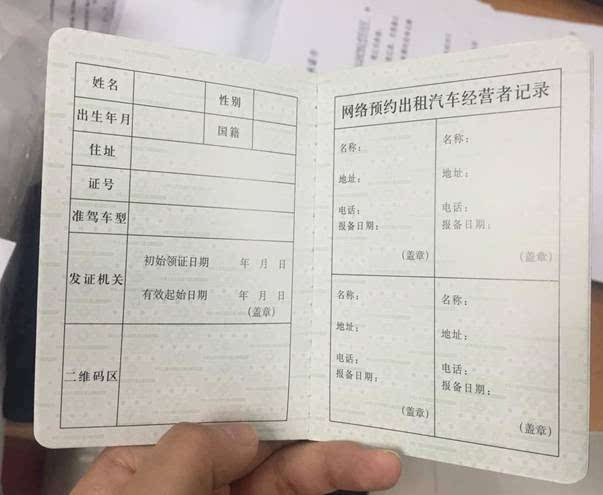 姓名 性别
出生年月 国籍
住址
证号
准驾车型
发证机关
初始领证日期 年 月 日
有效起始日期 年 月 日
(盖章)
二维码区
网络预约出租汽车经营者记录
名称：
地址：
电话：
报备日期：
(盖章)
名称：
地址：
电话：
报备日期：
(盖章)
名称：
地址：
电话：
报备日期：
(盖章)
名称：
地址：
电话：
报备日期：
(盖章)